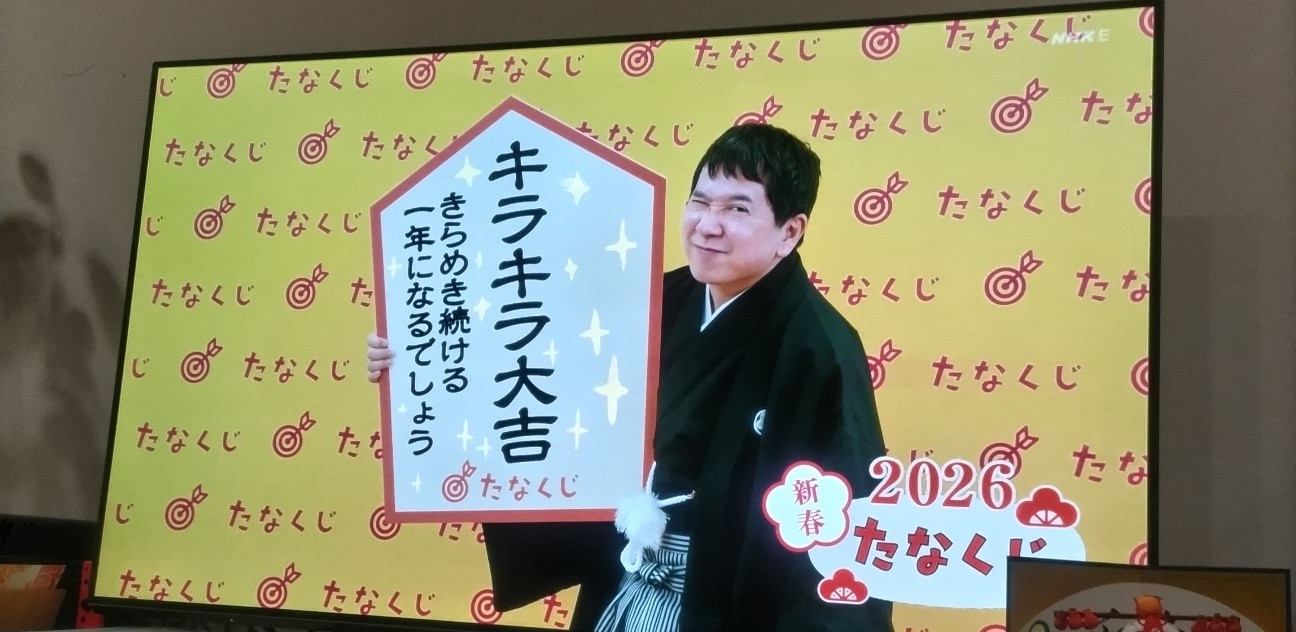 NHK E
キラキラ大吉
きらめき続ける
一年になるでしょう
たなくじ
新春
2026
たなくじ
じ たなくじ たなくじ たなくじ たなくじ
たなくじ たなくじ たなくじ たなくじ たな
じ たなくじ たなくじ
たなくじ た たなくじ たな
じ たなくじ たなくじ
たなくじ た くじ たな
じ たなくじ
たなくじ たなくじ た